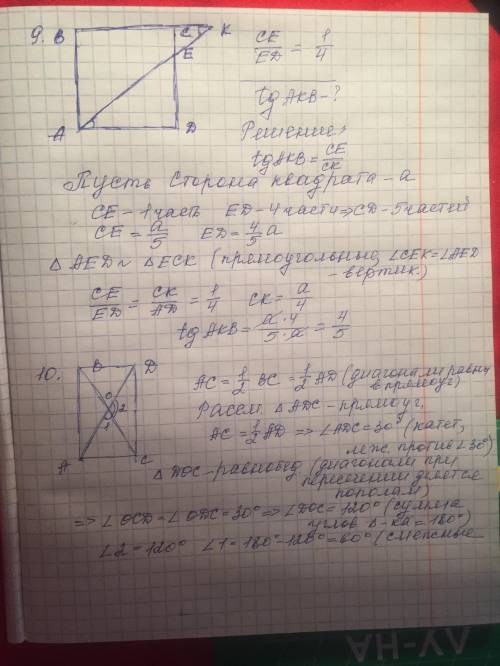 9. B C K
E
A D
CE/ED = 1/4
tg AKB - ?
Решение:
tg AKB = CE/CK
Пусть сторона квадрата - a
CE - 1 часть ED - 4 части ⇒ CD - 5 частей
CE = a/5 ED = 4/5 a
△ AED ~ △ ECK (прямоугольные, ∠CEK = ∠AED
- вертик.)
CE/ED = CK/AD = 1/4 CK = a/4
tg AKB = a·4/5·a = 4/5
10. B D
O
2
1
A C
AC = 1/2 BC = 1/2 AD (диагонали равны
в прямоуг)
Рассм. △ ADC - прямоуг.
AC = 1/2 AD ⇒ ∠ADC = 30° (катет,
леж. против ∠30°)
△ DOC - равнобед. (диагонали при
пересечении делятся
пополам)
⇒ ∠OCD = ∠ODC = 30° ⇒ ∠DOC = 120° (сумма
углов △-ка = 180°)
∠2 = 120° ∠1 = 180° - 120° = 60° (смежные
ЛУ-НА